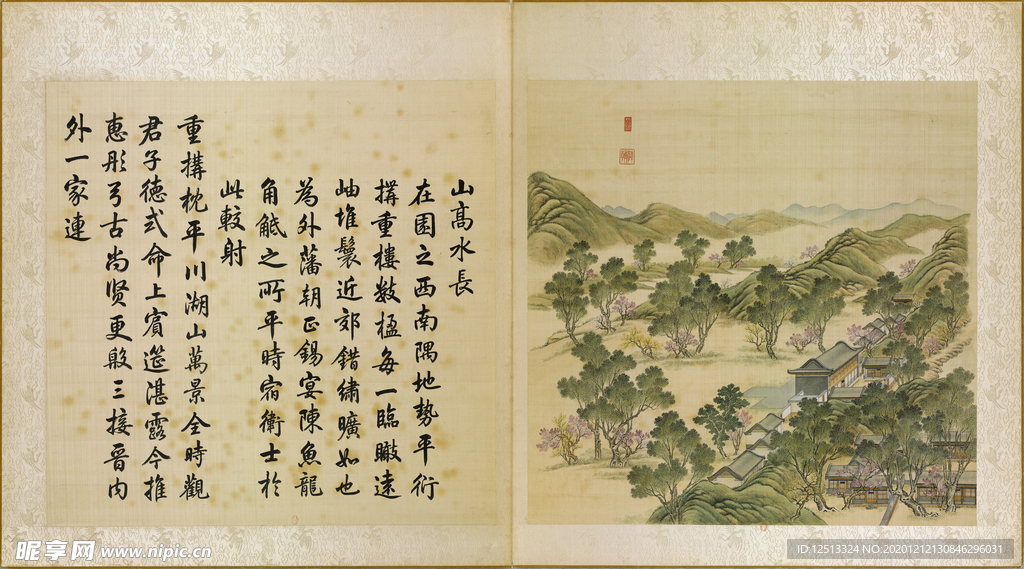 山髙水長
在園之西南隅地勢平衍
搆重樓數楹每一臨瞰遠
岫堆鬟近郊錯繡曠如也
為外藩朝正錫宴陳魚龍
角觝之所平時宿衛士於
此較射
重搆枕平川湖山萬景全時觀
君子德式命上賓筵湛露今推
惠彤弓古尚賢更殷三接晉内
外一家連
昵享网 www.nipic.cn
ID:12513324 NO:20201212130846296031